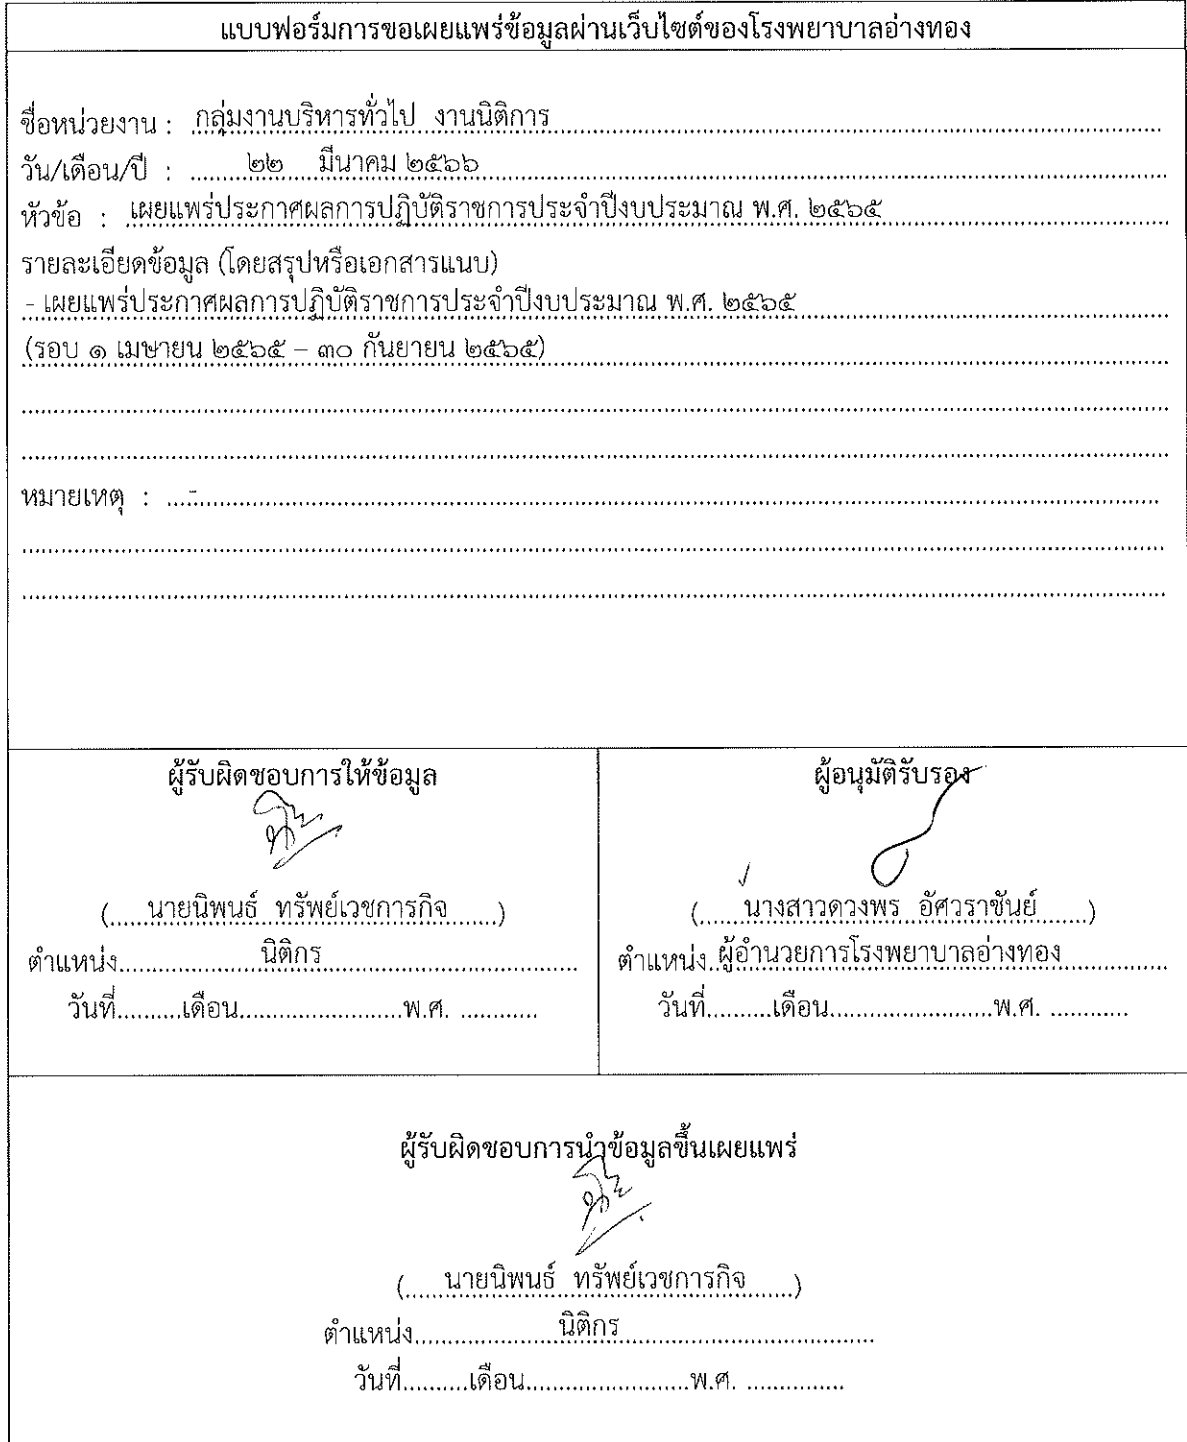 แบบฟอร์มการขอเผยแพร่ข้อมูลผ่านเว็บไซต์ของโรงพยาบาลอ่างทอง
ชื่อหน่วยงาน : กลุ่มงานบริหารทั่วไป งานนิติการ
วัน/เดือน/ปี : ๒๒ มีนาคม ๒๕๖๖
หัวข้อ : เผยแพร่ประกาศผลการปฏิบัติราชการประจำปีงบประมาณ พ.ศ. ๒๕๖๕
รายละเอียดข้อมูล (โดยสรุปหรือเอกสารแนบ)
- เผยแพร่ประกาศผลการปฏิบัติราชการประจำปีงบประมาณ พ.ศ. ๒๕๖๕
(รอบ ๑ เมษายน ๒๕๖๕ – ๓๐ กันยายน ๒๕๖๕)
หมายเหตุ : -
ผู้รับผิดชอบการให้ข้อมูล
(.....นายนิพนธ์ ทรัพย์เวชการกิจ......)
ตำแหน่ง นิติกร
วันที่..........เดือน.........................พ.ศ. ............
ผู้อนุมัติรับรอง
(......นางสาวดวงพร อัศวราชันย์......)
ตำแหน่ง ผู้อำนวยการโรงพยาบาลอ่างทอง
วันที่..........เดือน.........................พ.ศ. ............
ผู้รับผิดชอบการนำข้อมูลขึ้นเผยแพร่
(......นายนิพนธ์ ทรัพย์เวชการกิจ.......)
ตำแหน่ง นิติกร
วันที่..........เดือน.........................พ.ศ. ...............